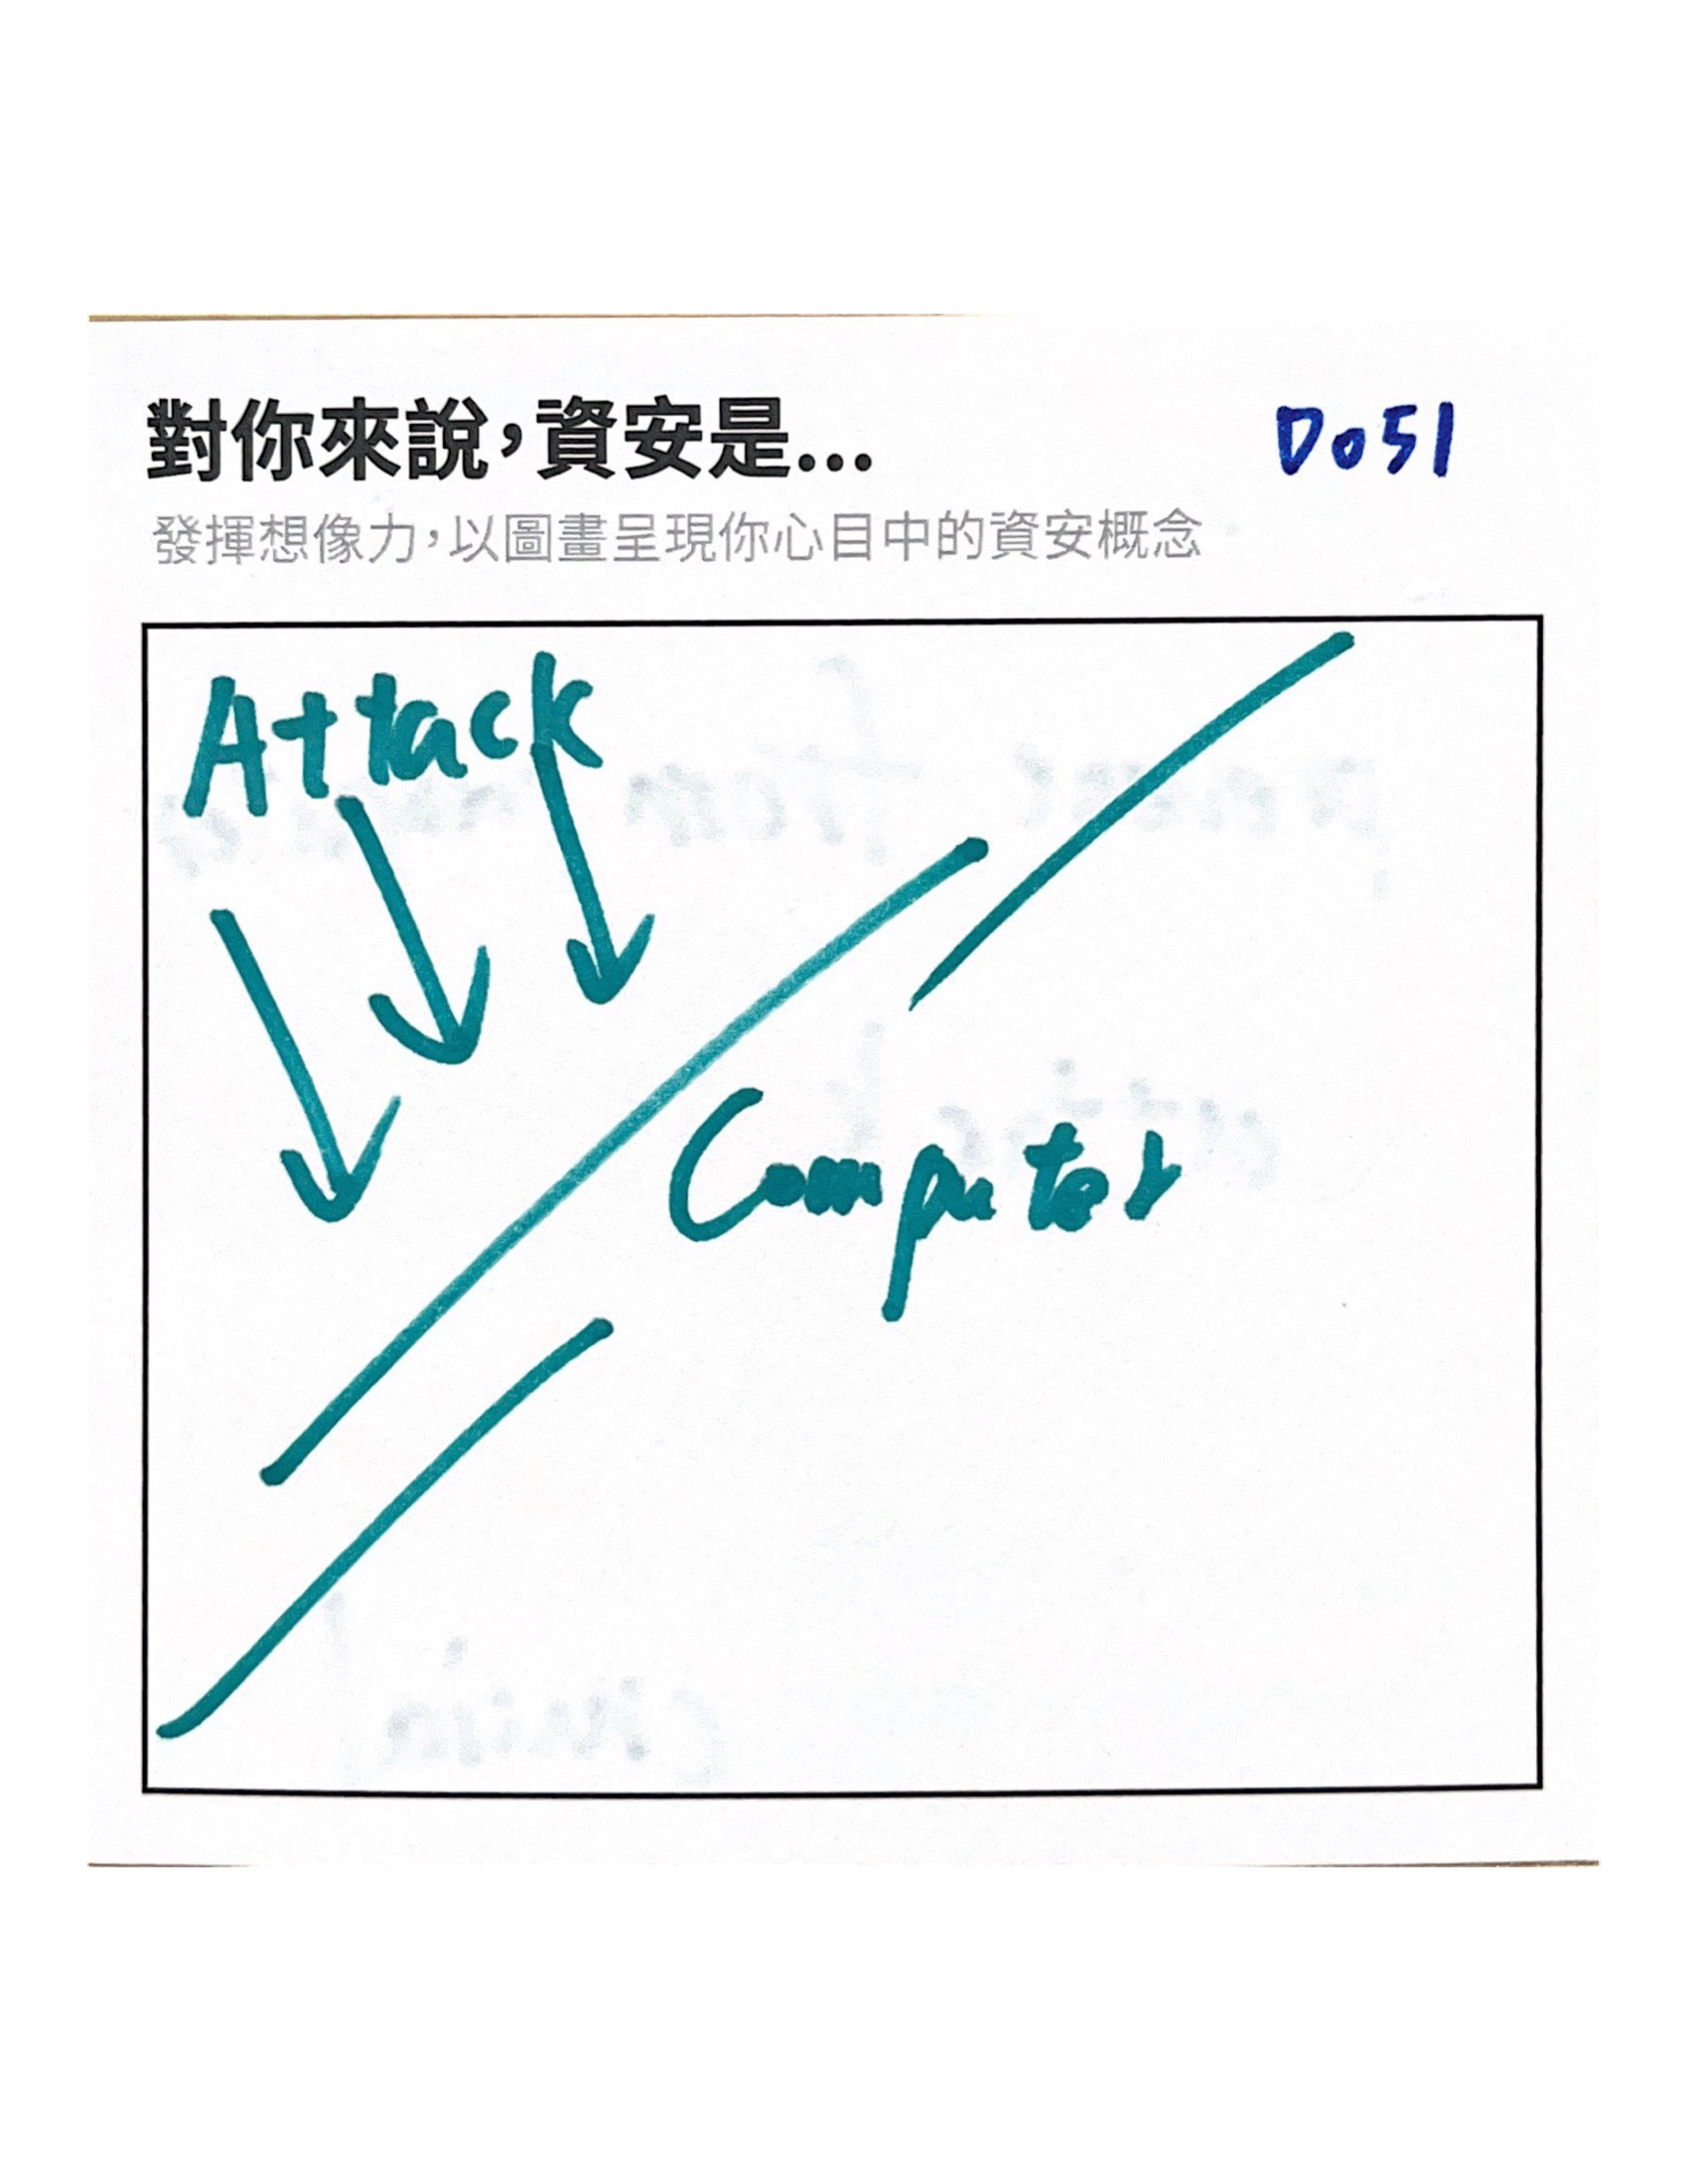 對你來說，資安是...
D051
發揮想像力，以圖畫呈現你心目中的資安概念
Attack
Computer